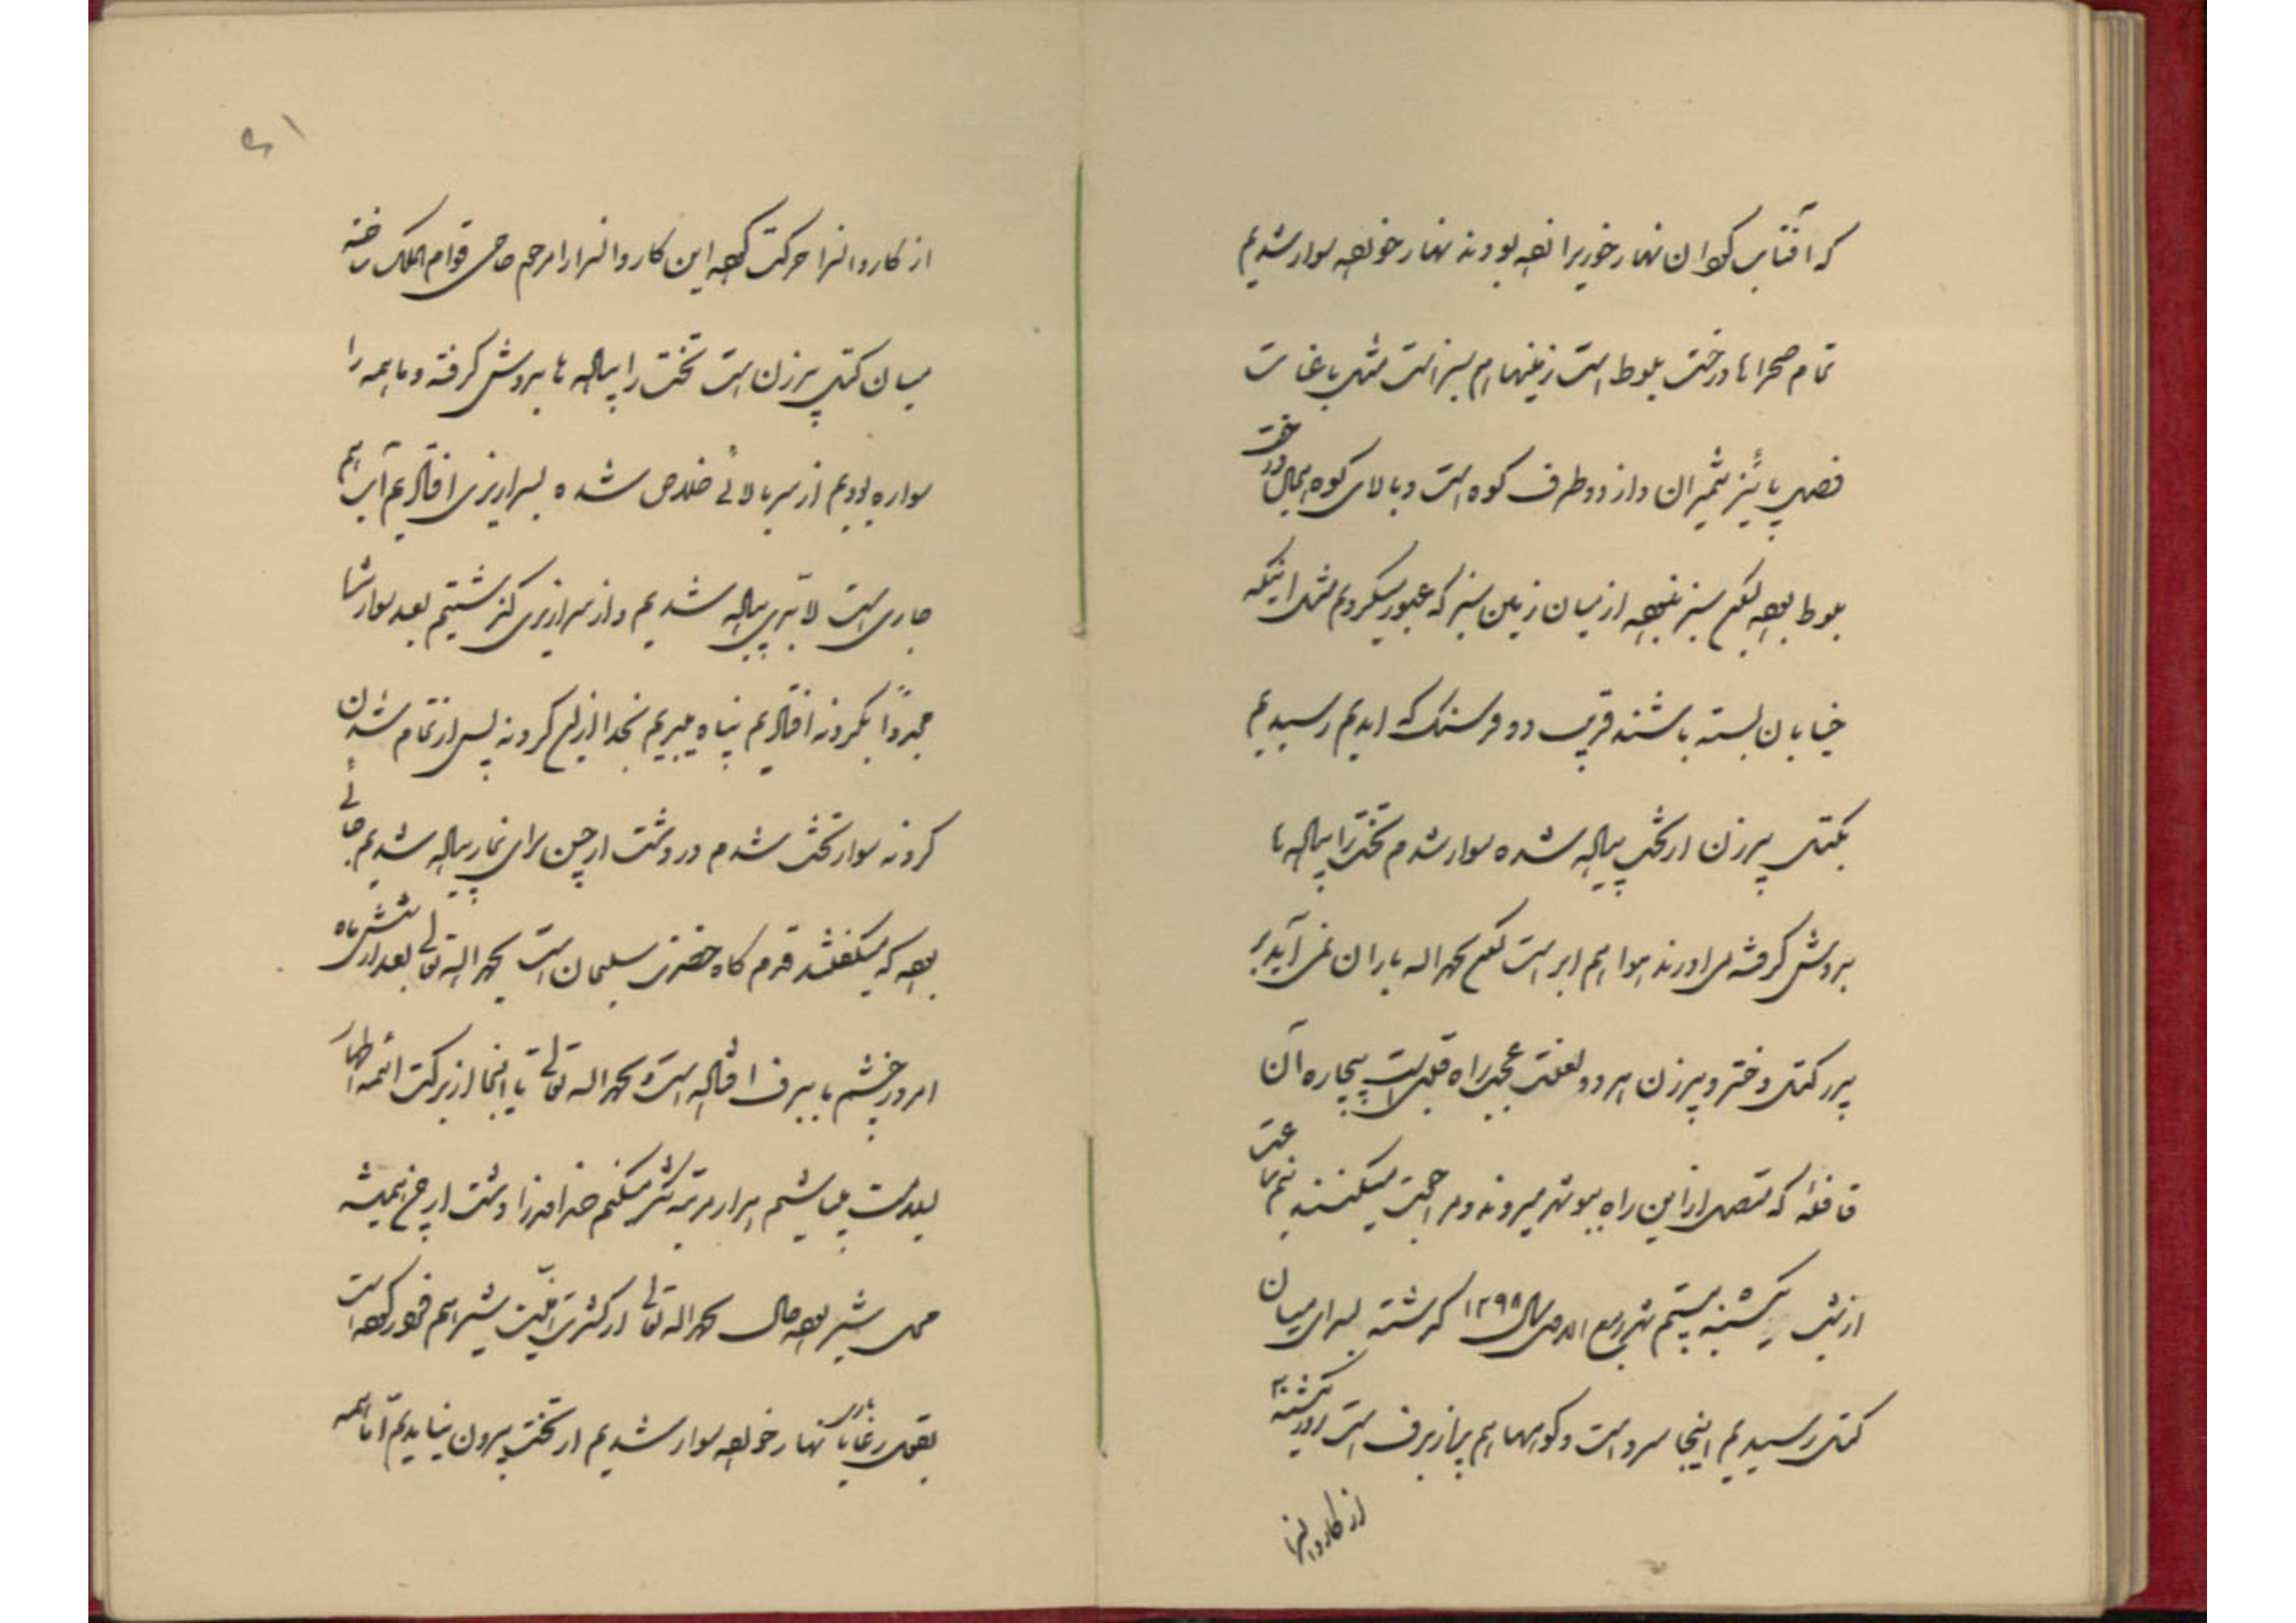 که آفتاب گردان نهار خوری را زده بودند نهار خورده سوار شدیم
تمام صحراها درخت بلوط است زمینها هم سبز است مثل باغات
فصل پائیز شمیران و از دو طرف کوه است و بالای کوه الی حال درخت
بلوط بوده لکن سبز نبوده از میان زمین سبز که عبور میکردیم مثل اینکه
خیابان بسته باشند قریب دو فرسنگ که آمدیم رسیدیم
بکتل پیرزن از تخت پیاده شده سوار شدم تخت را پیاده ها
بدوش گرفته می آورند هوا هم ابر است لکن بحمد الله باران نمی آید بر
پدر کتل دختر و پیرزن هر دو لعنت عجب راه قلبی است بیچاره آن
قافله که متصل از این راه ببوشهر میروند و مراجعت میکنند نیم ساعت
از شب یکشنبه بیستم شهر ربیع الاول سال ۱۲۹۸ گذشته بسرای میان
کتل رسیدیم اینجا سرد است و کوهها هم پر از برف است روز یکشنبه
از کاروانسرا
از کاروانسرا حرکت کرده این کاروانسرا را مرحوم حاجی قوام الملک ساخته
میان کتل پیرزن است تخت را پیاده ها بدوش گرفته و ما همه را
سواره بودیم از سربالائی خلاص شده بسرازیری افتادیم آب هم
جاری است لابد پیاده شدیم و از سرازیری گذشتیم بعد سوار شد
مجدداً بگردنه افتادیم پناه میبریم بخدا از این گردنه پس از تمام شدن
گردنه سوار تخت شدم در دشت ارجن برای نهار پیاده شدیم جائی
بوده که میگفتند قدم گاه حضرت سلیمان است بحمد الله تعالی بعد از شش ماه
امروز چشم ما ببرف افتاده است و بحمد الله تعالی تا اینجا از برکت ائمه اطهار
بسلامت میباشیم هزار مرتبه شکر میکنم خداوند را دشت ارجن همیشه
محل شیر بوده حال بحمد الله تعالی از کثرت امنیت شیر هم فرار کرده است
بقول رعایا نهار خورده سوار شدیم از تخت بیرون نیامدیم اما همه